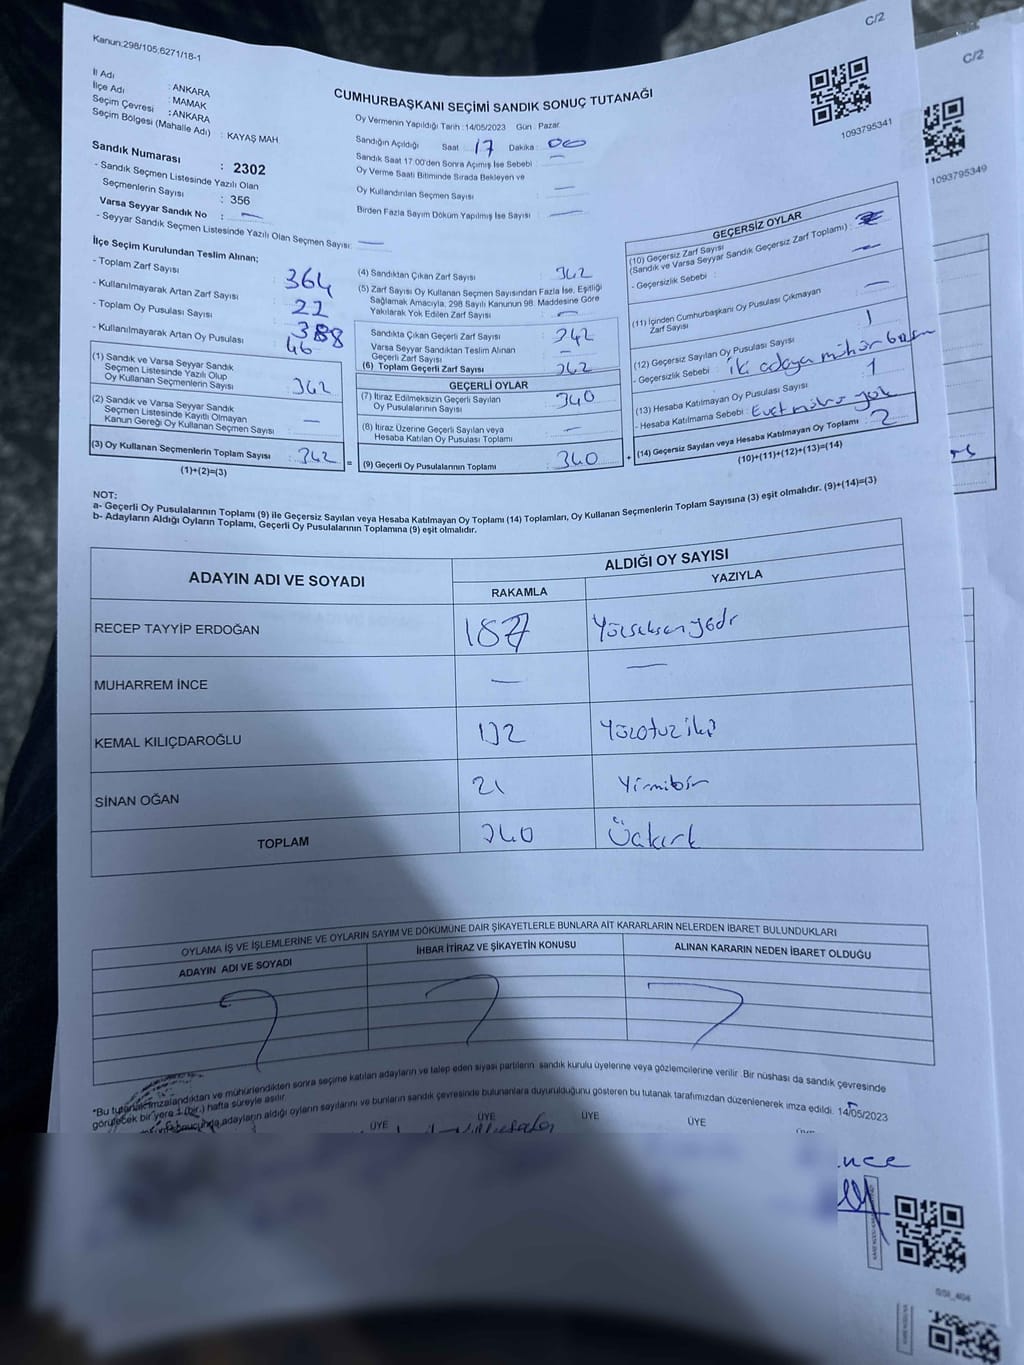 C/2
Kanun:298/105;6271/18-1
İl Adı : ANKARA
İlçe Adı : MAMAK
Seçim Çevresi : ANKARA
Seçim Bölgesi (Mahalle Adı) : KAYAŞ MAH
CUMHURBAŞKANI SEÇİMİ SANDIK SONUÇ TUTANAĞI
1093795341
Oy Vermenin Yapıldığı Tarih :14/05/2023 Gün : Pazar
Sandığın Açıldığı Saat : 17 Dakika : 00
Sandık Saat 17:00'den Sonra Açımış İse Sebebi : —
Oy Verme Saati Bitiminde Sırada Bekleyen ve
Oy Kullandırılan Seçmen Sayısı : —
Birden Fazla Sayım Döküm Yapılmış İse Sayısı : —
Sandık Numarası : 2302
- Sandık Seçmen Listesinde Yazılı Olan
Seçmenlerin Sayısı : 356
Varsa Seyyar Sandık No : —
- Seyyar Sandık Seçmen Listesinde Yazılı Olan Seçmen Sayısı: —
İlçe Seçim Kurulundan Teslim Alınan;
- Toplam Zarf Sayısı : 364
- Kullanılmayarak Artan Zarf Sayısı : 22
- Toplam Oy Pusulası Sayısı : 388
- Kullanılmayarak Artan Oy Pusulası : 46
(1) Sandık ve Varsa Seyyar Sandık
Seçmen Listesinde Yazılı Olup
Oy Kullanan Seçmenlerin Sayısı : 342
(2) Sandık ve Varsa Seyyar Sandık
Seçmen Listesinde Kayıtlı Olmayan
Kanun Gereği Oy Kullanan Seçmen Sayısı : —
(3) Oy Kullanan Seçmenlerin Toplam Sayısı : 342
(1)+(2)=(3)
(4) Sandıktan Çıkan Zarf Sayısı : 342
(5) Zarf Sayısı Oy Kullanan Seçmen Sayısından Fazla İse, Eşitliği
Sağlamak Amacıyla, 298 Sayılı Kanunun 98. Maddesine Göre
Yakılarak Yok Edilen Zarf Sayısı : —
Sandıkta Çıkan Geçerli Zarf Sayısı : 342
Varsa Seyyar Sandıktan Teslim Alınan
Geçerli Zarf Sayısı : —
(6) Toplam Geçerli Zarf Sayısı : 342
GEÇERLİ OYLAR
(7) İtiraz Edilmeksizin Geçerli Sayılan
Oy Pusulalarının Sayısı : 340
(8) İtiraz Üzerine Geçerli Sayılan veya
Hesaba Katılan Oy Pusulası Toplamı : —
= (9) Geçerli Oy Pusulalarının Toplamı : 340
GEÇERSİZ OYLAR
(10) Geçersiz Zarf Sayısı
(Sandık ve Varsa Seyyar Sandık Geçersiz Zarf Toplamı) :
- Geçersizlik Sebebi : —
(11) İçinden Cumhurbaşkanı Oy Pusulası Çıkmayan
Zarf Sayısı : —
(12) Geçersiz Sayılan Oy Pusulası Sayısı : 1
- Geçersizlik Sebebi : iki adaya mühür basım
(13) Hesaba Katılmayan Oy Pusulası Sayısı : 1
- Hesaba Katılmama Sebebi : Evet mührü yok
+ (14) Geçersiz Sayılan veya Hesaba Katılmayan Oy Toplamı : 2
(10)+(11)+(12)+(13)=(14)
NOT:
a- Geçerli Oy Pusulalarının Toplamı (9) ile Geçersiz Sayılan veya Hesaba Katılmayan Oy Toplamı (14) Toplamları, Oy Kullanan Seçmenlerin Toplam Sayısına (3) eşit olmalıdır. (9)+(14)=(3)
b- Adayların Aldığı Oyların Toplamı, Geçerli Oy Pusulalarının Toplamına (9) eşit olmalıdır.
ADAYIN ADI VE SOYADI
ALDIĞI OY SAYISI
RAKAMLA YAZIYLA
RECEP TAYYİP ERDOĞAN 187 Yüzseksenyedi
MUHARREM İNCE — —
KEMAL KILIÇDAROĞLU 132 Yüzotuz iki
SİNAN OĞAN 21 Yirmibir
TOPLAM 340 Üçkırk
OYLAMA İŞ VE İŞLEMLERİNE VE OYLARIN SAYIM VE DÖKÜMÜNE DAİR ŞİKAYETLERLE BUNLARA AİT KARARLARIN NELERDEN İBARET BULUNDUKLARI
ADAYIN ADI VE SOYADI İHBAR İTİRAZ VE ŞİKAYETİN KONUSU ALINAN KARARIN NEDEN İBARET OLDUĞU
*Bu tutanak imzalandıktan ve mühürlendikten sonra seçime katılan adayların ve talep eden siyasi partilerin sandık kurulu üyelerine veya gözlemcilerine verilir. Bir nüshası da sandık çevresinde
görülecek bir yere 1 (bir.) hafta süreyle asılır.
adayların aldığı oyların sayılarını ve bunların sandık çevresinde bulunanlara duyurulduğunu gösteren bu tutanak tarafımızdan düzenlenerek imza edildi. 14/05/2023
ÜYE ÜYE ÜYE ÜYE
C/2
1093795349